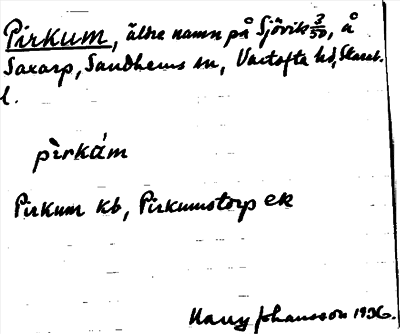 Pirkum, äldre namn på Sjövik 3/50, å
Saxarp, Sandhems sn, Vartofta hd, Skarab.
l.
pìrkúm
Pirkum kb, Pirkumstorp ek
Harry Johansson 1936.